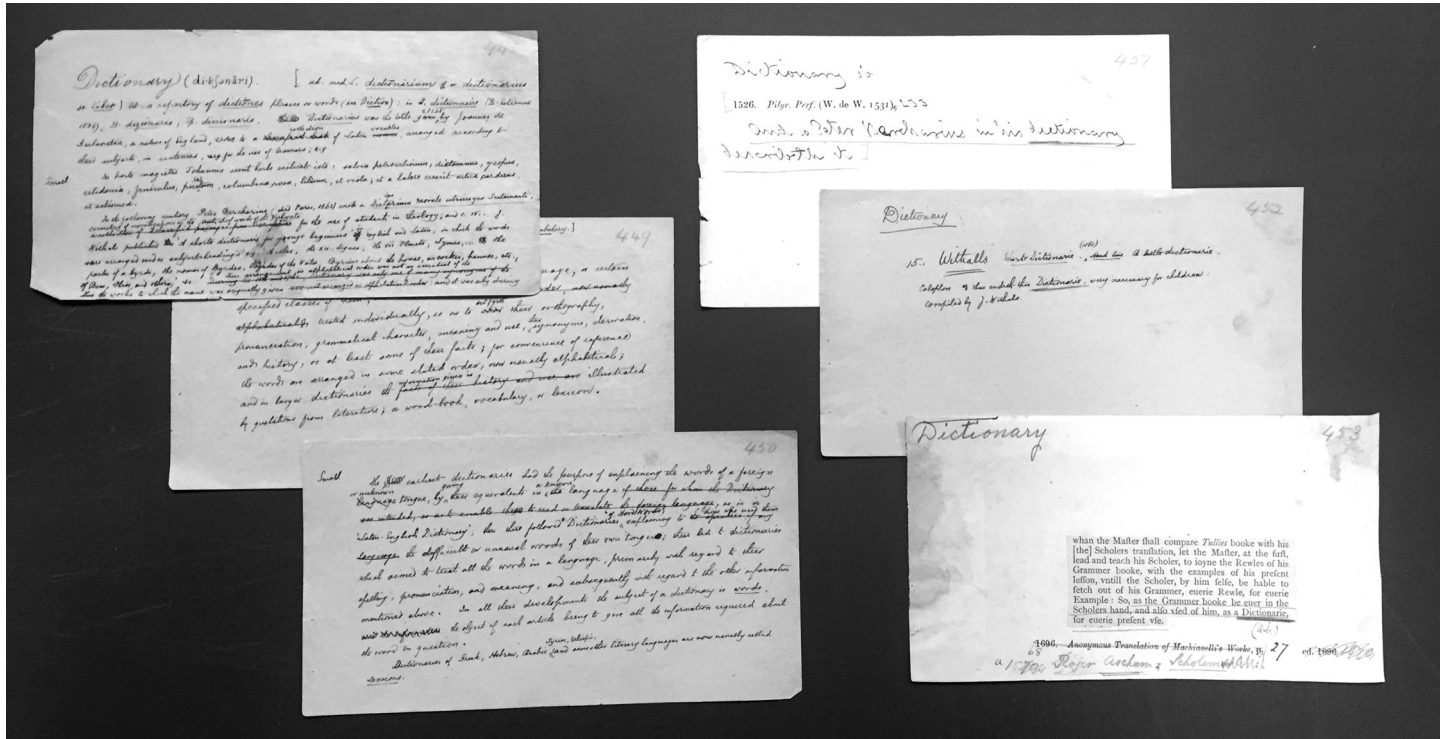 44
Dictionary (di·kʃənări). [ad. med.L. dictionārium or dictionārius
sc. liber] lit. a repertory of dictiones phrases or words (see Diction): in F. dictionnaire (R. Estienne
1539), It. dizionario, Sp. diccionario. Dictionarius was the title given by Joannes de
c 1225
Garlandia, a native of England, to a collection of Latin vocables arranged according to
their subjects, in sentences, for the use of learners; e.g.
Small
In horto magistri Johannis sunt herbe scilicet iste: salvia petrosilium, dictamnus, ysopus,
celidonia, feniculus, columbina, rosa, lilium, et viola; et a latere crescit urtica carduus,
et saliunca.
In the following century Peter Berchorius (died Paris, 1362) wrote a Dictionarium morale utriusque Testamenti,
consisting of moralizations on the chief words of the Vulgate
for the use of students in theology; and J.
Withals published 'A shorte dictionarie for yonge beginners' in English and Latin, in which the words
were arranged under subject-headings e.g. the names of Byrdes, Byrdes of the Water, Byrdes about the house, as cockes, hennes, etc.,
449
specified classes of them,
order, now usually
alphabetical, treated individually, so as to set forth their orthography,
pronunciation, grammatical character, meaning and use, synonyms, derivation,
and history, or at least some of these facts; for convenience of reference
the words are arranged in some stated order, now usually alphabetical;
and in larger dictionaries the information given is illustrated
by quotations from literature; a word-book, vocabulary, or lexicon.
450
Small
The earliest dictionaries had the purpose of explaining the words of a foreign
or unknown tongue, by giving their equivalents in a known language
'Latin-English Dictionary'; then there followed 'Dictionaries of Hard Words', explaining to those who used them
the difficult or unusual words of their own tongue; these led to dictionaries
which aimed to treat all the words in a language, primarily with regard to their
spelling, pronunciation, and meaning, and subsequently with regard to the other information
mentioned above. In all these developments the subject of a dictionary is words,
the object of each article being to give all the information required about
the word in question.
Dictionaries of Greek, Hebrew, Arabic, Syriac, Ethiopic, and some other literary languages are now usually called
Lexicons.
451
Dictionary
1526. Pilgr. Perf. (W. de W. 1531), 233
And as Peter Bercharius in his dictionary
describeth it
452
Dictionary
15.. Withalls (title) Shorte Dictionarie.
Colophon Thus endeth this Dictionarie, very necessary for children
Compiled by J. Withals.
Dictionary
453
whan the Maſter ſhall compare Tullies booke with his
[the] Scholers tranſlation, let the Maſter, at the firſt,
lead and teach his Scholer, to ioyne the Rewles of his
Grammer booke, with the examples of his preſent
leſſon, vntill the Scholer, by him ſelfe, be hable to
fetch out of his Grammer, euerie Rewle, for euerie
Example: So, as the Grammer booke be euer in the
Scholers hand, and alſo vſed of him, as a Dictionarie,
for euerie preſent vſe.
(Arb.)
1696. Anonymous Translation of Machiavelli's Works, p. 27 ed. 1696
a 1568 Roger Ascham Scholem.